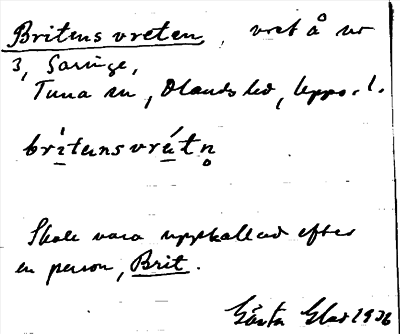 Britens vreten, vret å nr
3, Saringe,
Tuna sn, Olands hd, Upps. l.
britensvrétn̥
Skall vara uppkallad efter
en person, Brit.
Gösta Glad 1936